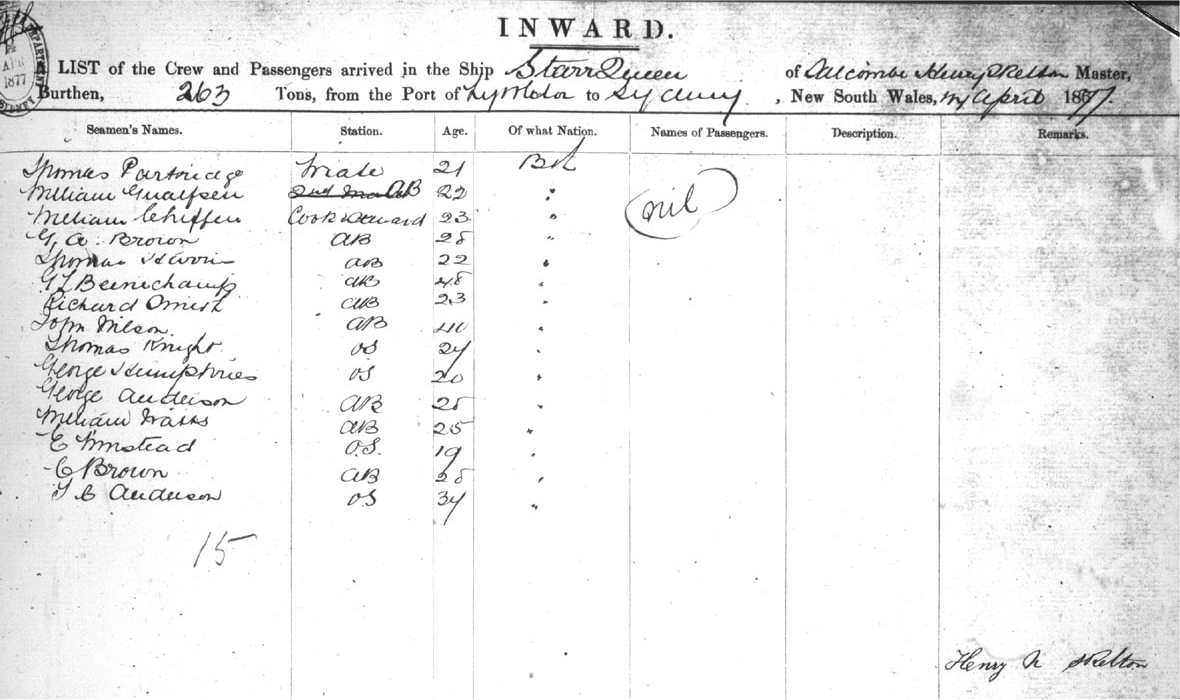 INWARD.
LIST of the Crew and Passengers arrived in the Ship Starr Queen of Henry Skelton Master,
Burthen, 263 Tons, from the Port of to Sydney, New South Wales, April 1877.
Seamen's Names. Station. Age. Of what Nation. Names of Passengers. Description. Remarks.
Thomas Partridge Mate 21 Bt
William AB 22 "
William Chiffen Cook & Steward 23 " nil
G. A. Brown AB 28 "
Thomas Harris AB 22 "
AB 48 "
Richard AB 23 "
John Wilson AB 40 "
Thomas Knight OS 24 "
George Humphries OS 20 "
George Anderson AB 25 "
William AB 25 "
E O.S. 19 "
C Brown AB 28 "
Anderson OS 34 "
15
Henry N Skelton
1877